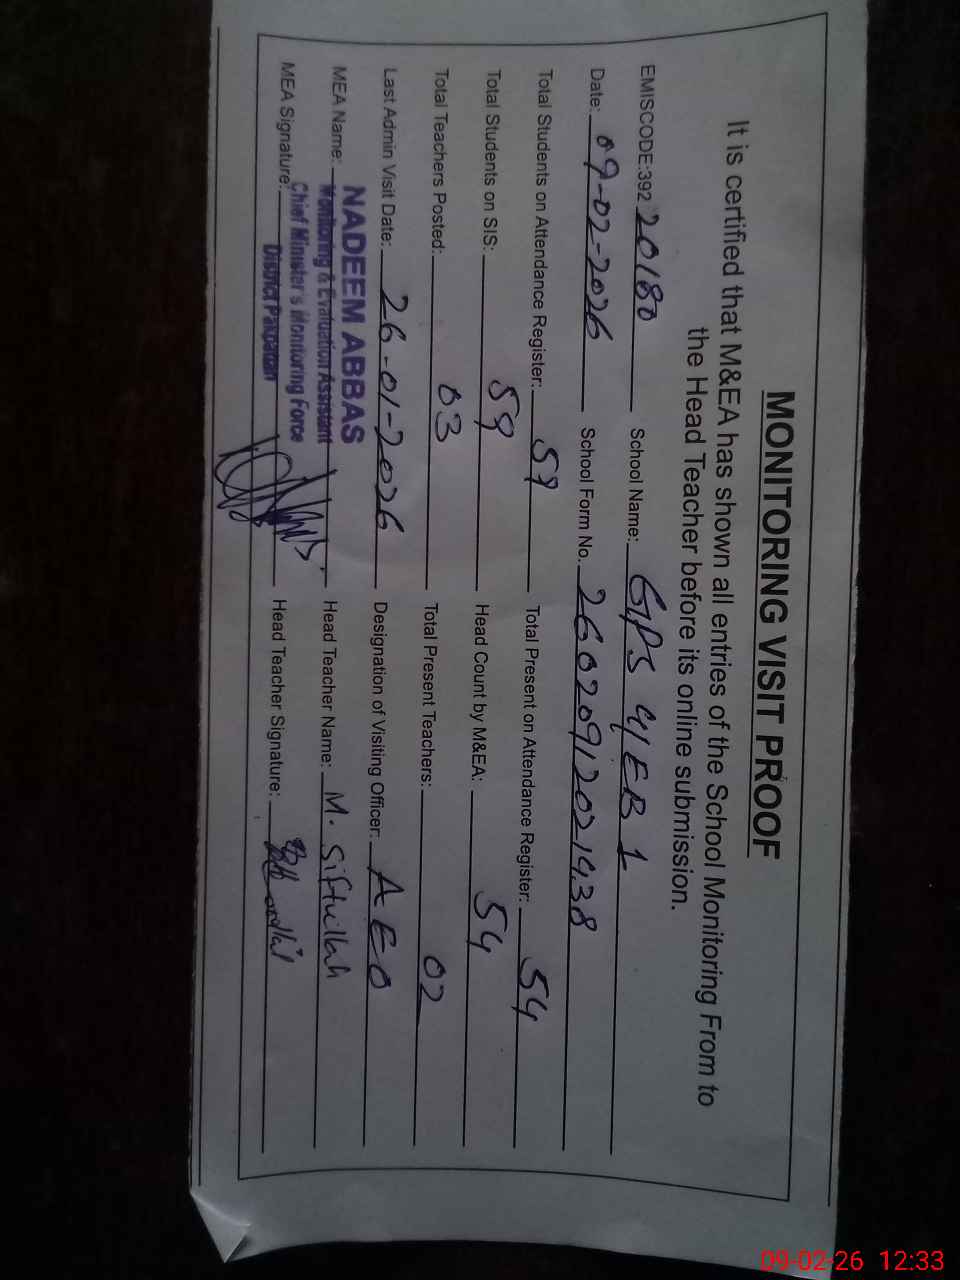 MONITORING VISIT PROOF
It is certified that M&EA has shown all entries of the School Monitoring From to
the Head Teacher before its online submission.
EMISCODE:392 20180 School Name: GPS 41 EB 1
Date: 09-02-2026 School Form No. 260209120219.38
Total Students on Attendance Register: 59 Total Present on Attendance Register: 54
Total Students on SIS: 59 Head Count by M&EA: 54
Total Teachers Posted: 03 Total Present Teachers: 02
Last Admin Visit Date: 26-01-2026 Designation of Visiting Officer: AEO
MEA Name: NADEEM ABBAS Head Teacher Name: M.
Monitoring & Evaluation Assistant
Chief Minister's Monitoring Force
District Pakpattan
MEA Signature: Head Teacher Signature:
09-02-26 12:33